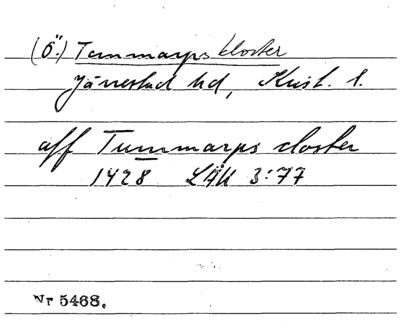 (Ö.) Tommarps kloster
Järrestad hd, Krist. l.
aff Tummarps closter
1428 LÄU 3:77
Nr 5468.